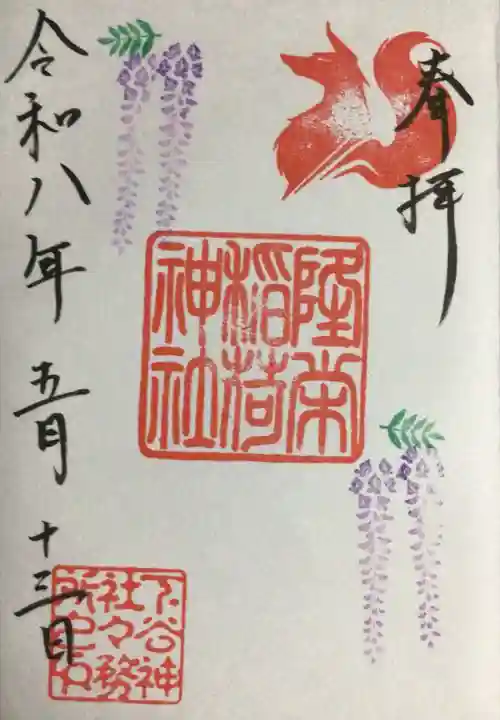 奉拝
隆栄
稲荷
神社
令和八年 五月 十三日
下谷神
社々務
所之印